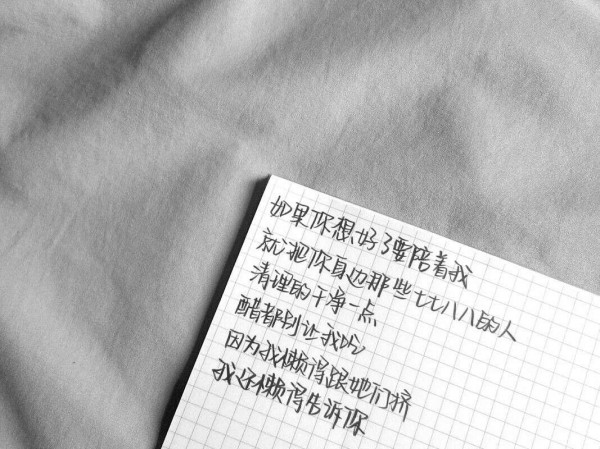 如果你想好了要陪着我
就把你身边那些七七八八的人
清理的干净一点
醋都别让我吃
因为我懒得跟她们挤
我还懒得告诉你